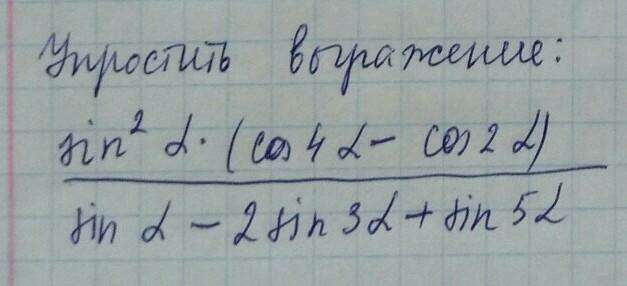 Упростить выражение:
sin² α · (cos 4α − cos 2α)
sin α − 2 sin 3α + sin 5α